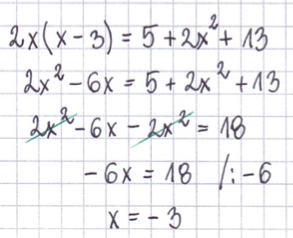 2x(x-3) = 5 + 2x² + 13
2x² - 6x = 5 + 2x² + 13
2x² - 6x - 2x² = 18
-6x = 18 /: -6
x = -3